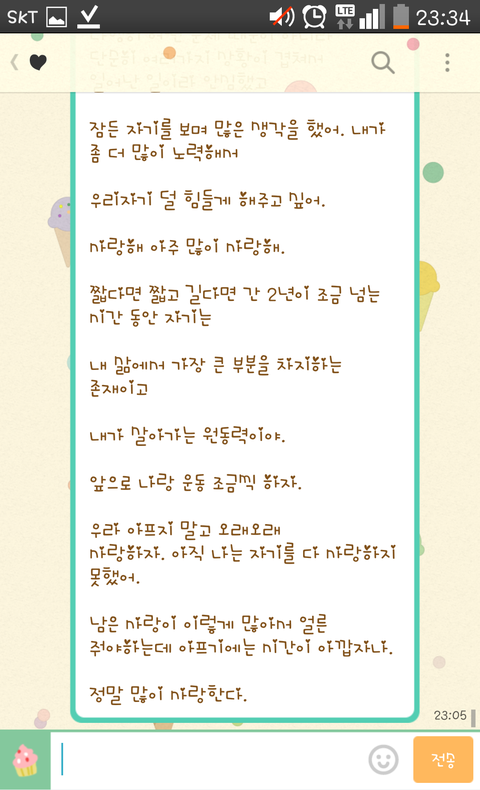 SKT LTE 23:34
단순히 여러가지 상황이 겹쳐서
일어난 일이라 안심했고
잠든 자기를 보며 많은 생각을 했어. 내가
좀 더 많이 노력해서
우리자기 덜 힘들게 해주고 싶어.
사랑해 아주 많이 사랑해.
짧다면 짧고 길다면 긴 2년이 조금 넘는
시간 동안 자기는
내 삶에서 가장 큰 부분을 차지하는
존재이고
내가 살아가는 원동력이야.
앞으로 나랑 운동 조금씩 하자.
우리 아프지 말고 오래오래
사랑하자. 아직 나는 자기를 다 사랑하지
못했어.
남은 사랑이 이렇게 많아서 얼른
줘야하는데 아프기에는 시간이 아깝자나.
정말 많이 사랑한다.
23:05
전송